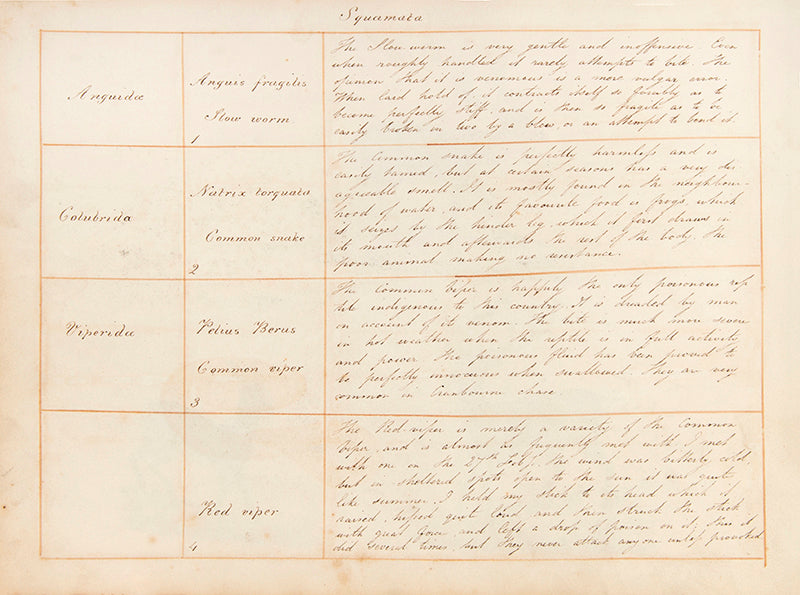 Squamata
Anguidæ
Anguis fragilis
Slow worm
1
The Slow worm is very gentle and inoffensive. Even
when roughly handled it rarely attempts to bite. The
opinion that it is venomous is a mere vulgar error.
When laid hold of it contracts itself so forcibly as to
become perfectly stiff, and is then so fragile as to be
easily broken in two by a blow, or an attempt to bend it.
Colubrida
Natrix torquata
Common snake
2
The Common snake is perfectly harmless and is
easily tamed, but at certain seasons has a very dis-
agreeable smell. It is mostly found in the neighbour-
hood of water, and its favourite food is frogs, which
it seizes by the hinder leg, which it first draws in
its mouth and afterwards the rest of the body. The
poor animal making no resistance.
Viperidæ
Pelius Berus
Common viper
3
The Common Viper is happily the only poisonous rep
tile indigenous to this country. It is dreaded by man
on account of its venom. The bite is much more severe
in hot weather when the reptile is in full activity
and power. The poisonous fluid has been proved to
be perfectly innocuous when swallowed. They are very
common in Cranbourne chase.
Red viper
4
The Red viper is merely a variety of the Common
Viper, and is almost as frequently met with. I met
with one on the 27th Feby. The wind was bitterly cold,
but in sheltered spots open to the sun it was quite
like summer. I held my stick to its head which it
raised, hissed quite loud and then struck the stick
with great force, and left a drop of poison on it; this it
did several times, but they never attack anyone unless provoked